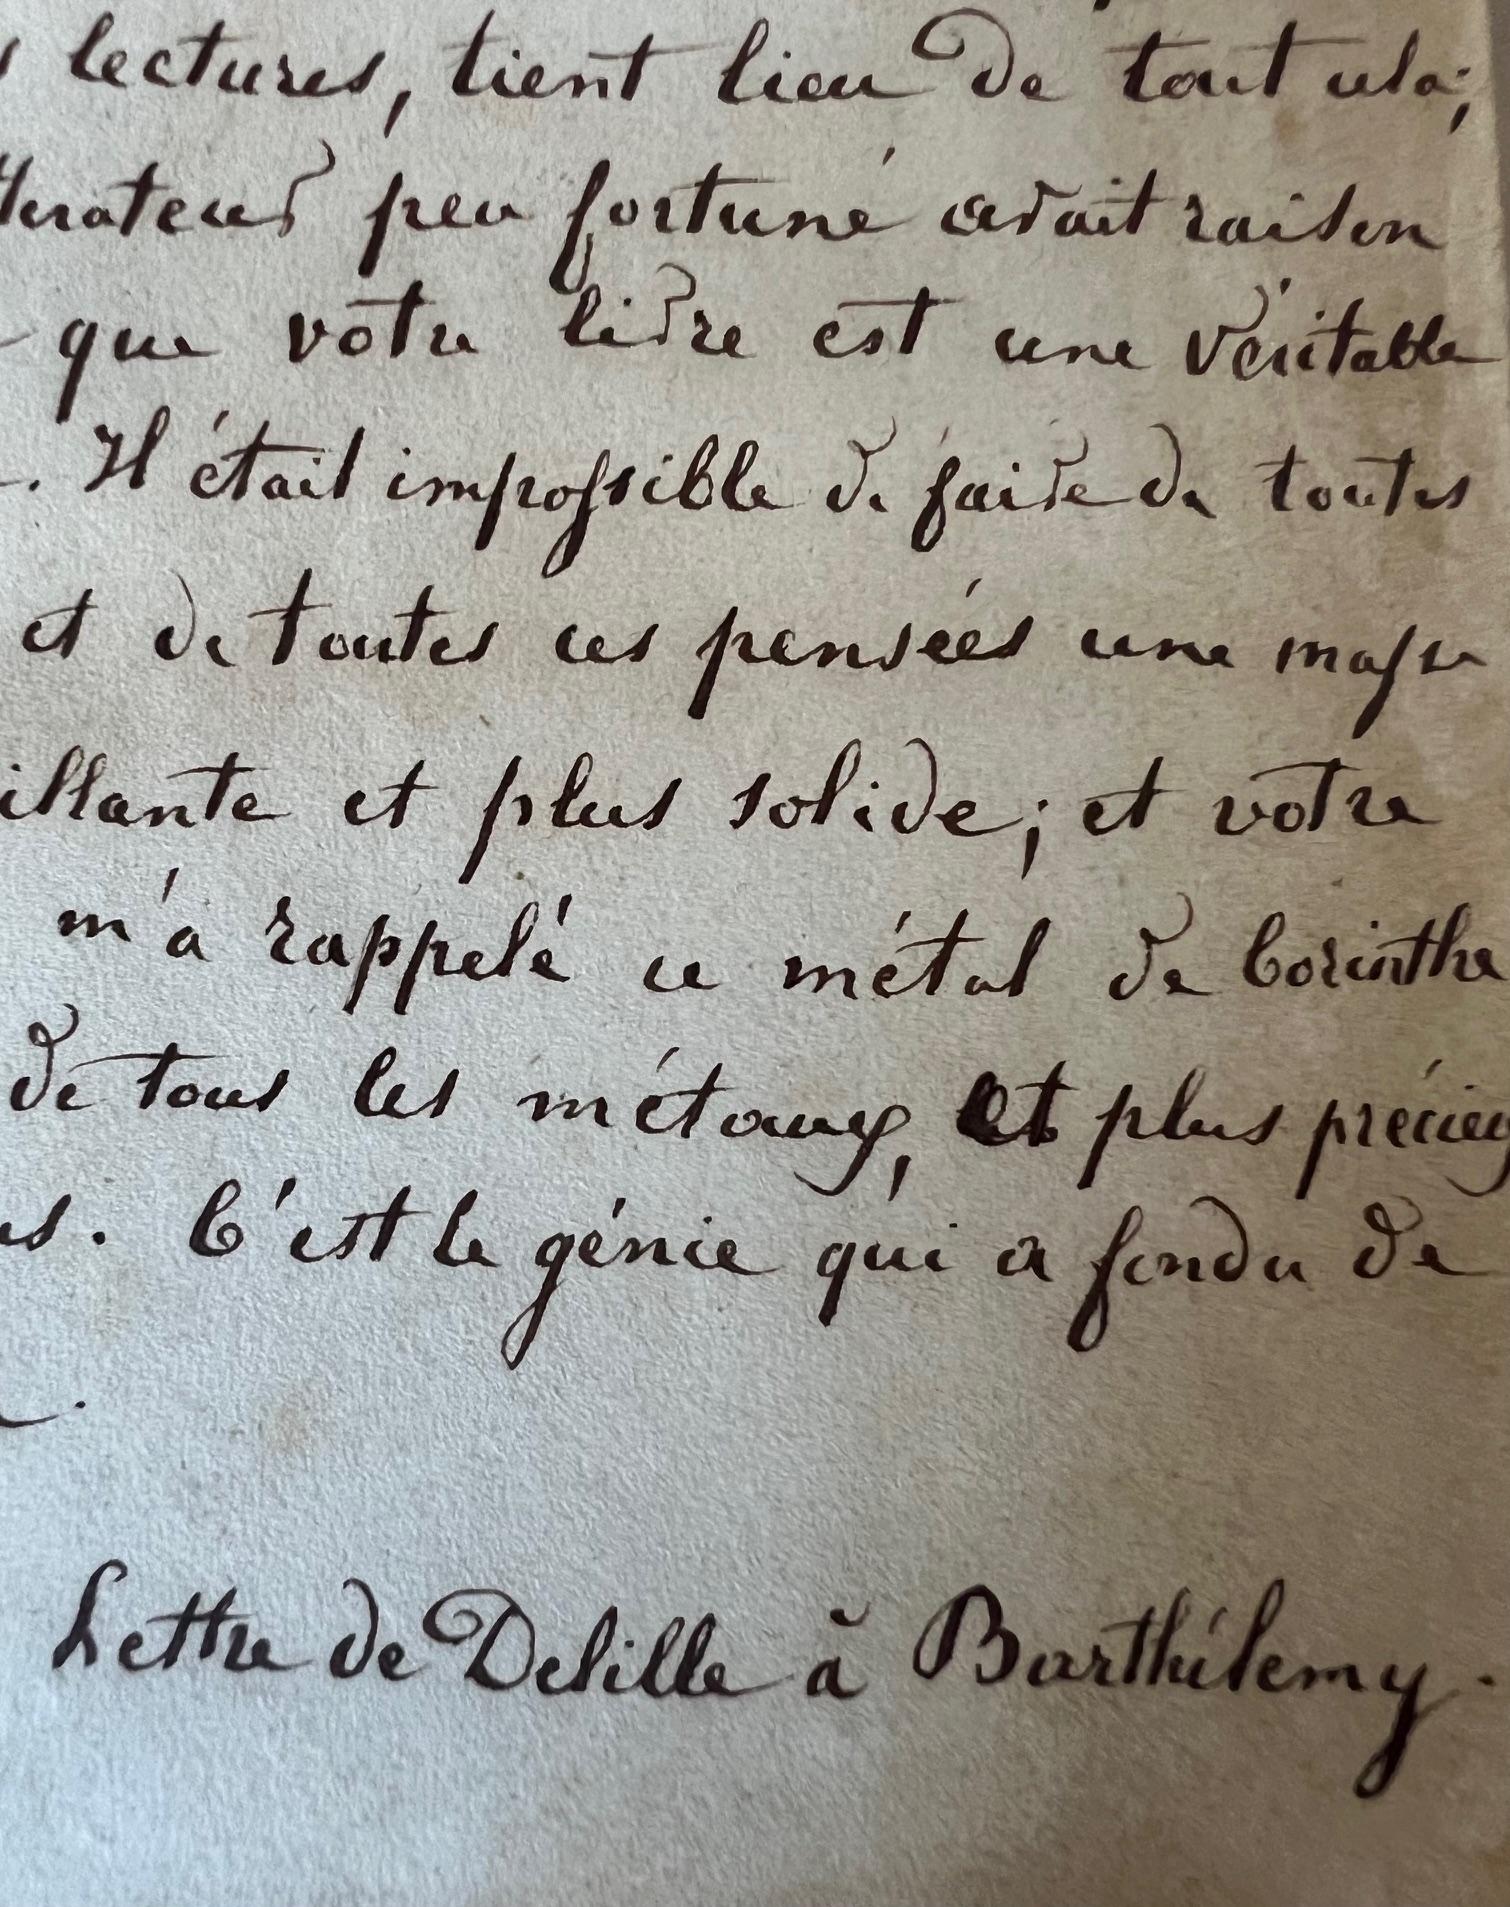 s lectures, tient lieu de tout cela;
ttérateur peu fortuné avait raison
que votre livre est une véritable
. Il était impossible de faire de toutes
et de toutes ces pensées une masse
illante et plus solide; et votre
m'a rappelé ce métal de Corinthe
de tous les métaux, et plus précieux
us. C'est le génie qui a fondu de
Lettre de Delille à Barthélemy.